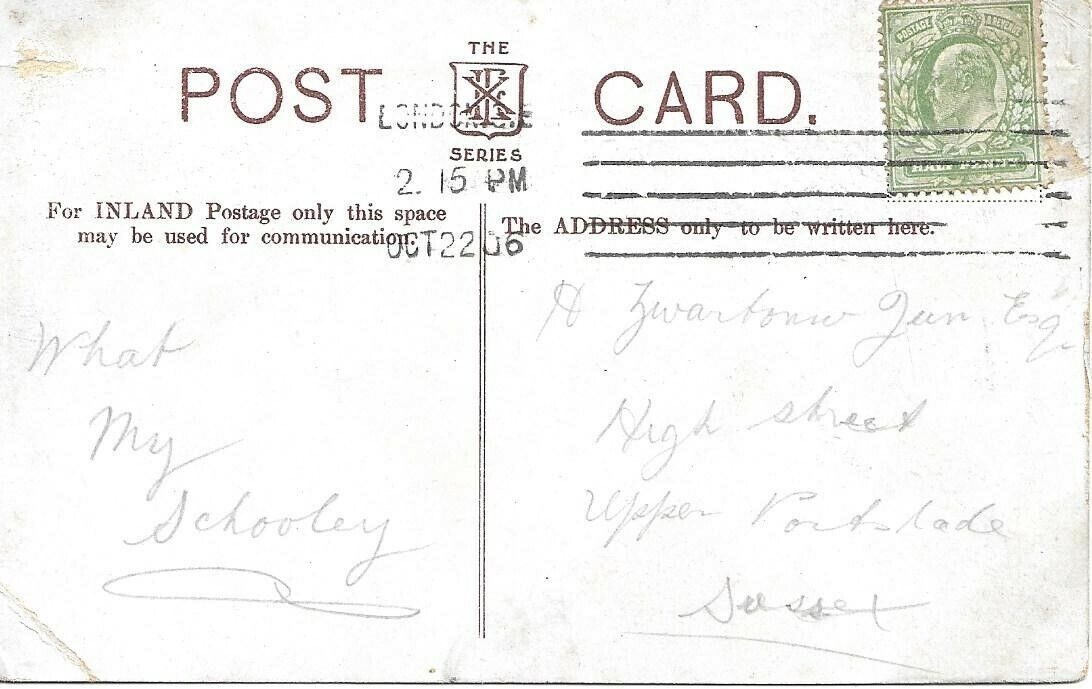 THE
POST CARD.
SERIES
LONDON
2. 15 PM
OCT 22 06
POSTAGE & REVENUE
For INLAND Postage only this space
may be used for communication.
The ADDRESS only to be written here.
What
My
Schooley
H Jun Esq
High street
Upper Portslade
Sussex